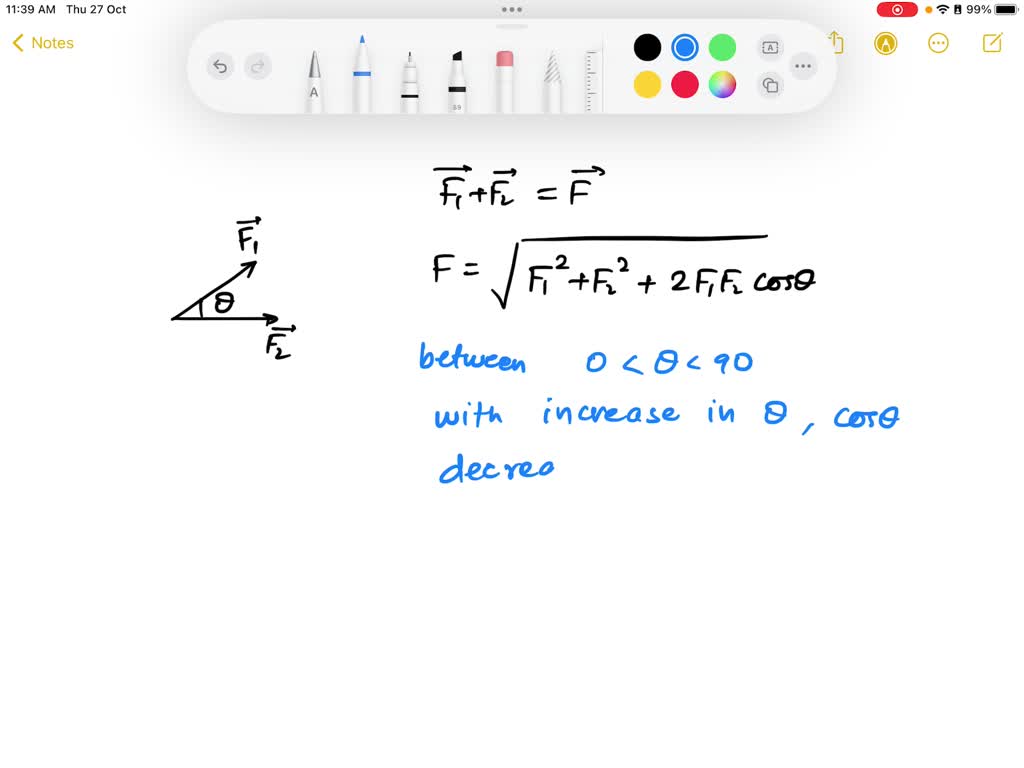 11:39 AM Thu 27 Oct
99%
Notes
A
A
89
F₁ + F₂ = F
F₁
F = √F₁² + F₂² + 2F₁F₂ cosθ
θ
F₂
between 0 < θ < 90
with increase in θ, cosθ
decrea